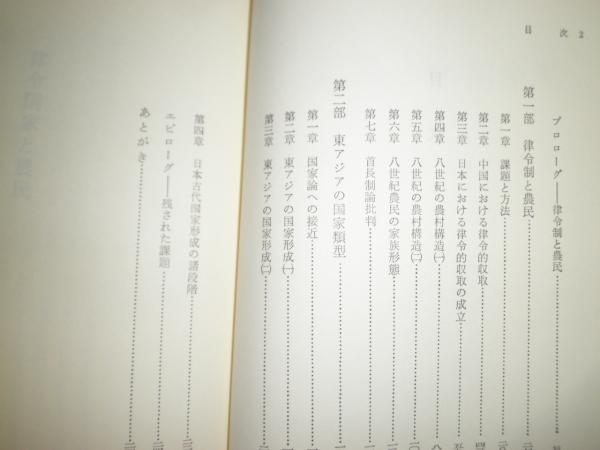 目次 2
プロローグ――律令制と農民
第一部 律令制と農民
第一章 課題と方法
第二章 中国における律令的収取
第三章 日本における律令的収取の成立
第四章 八世紀の農村構造㈠
第五章 八世紀の農村構造㈡
第六章 八世紀農民の家族形態
第七章 首長制論批判
第二部 東アジアの国家類型
第一章 国家論への接近
第二章 東アジアの国家形成㈠
第三章 東アジアの国家形成㈡
第四章 日本古代国家形成の諸段階
エピローグ――残された課題
あとがき